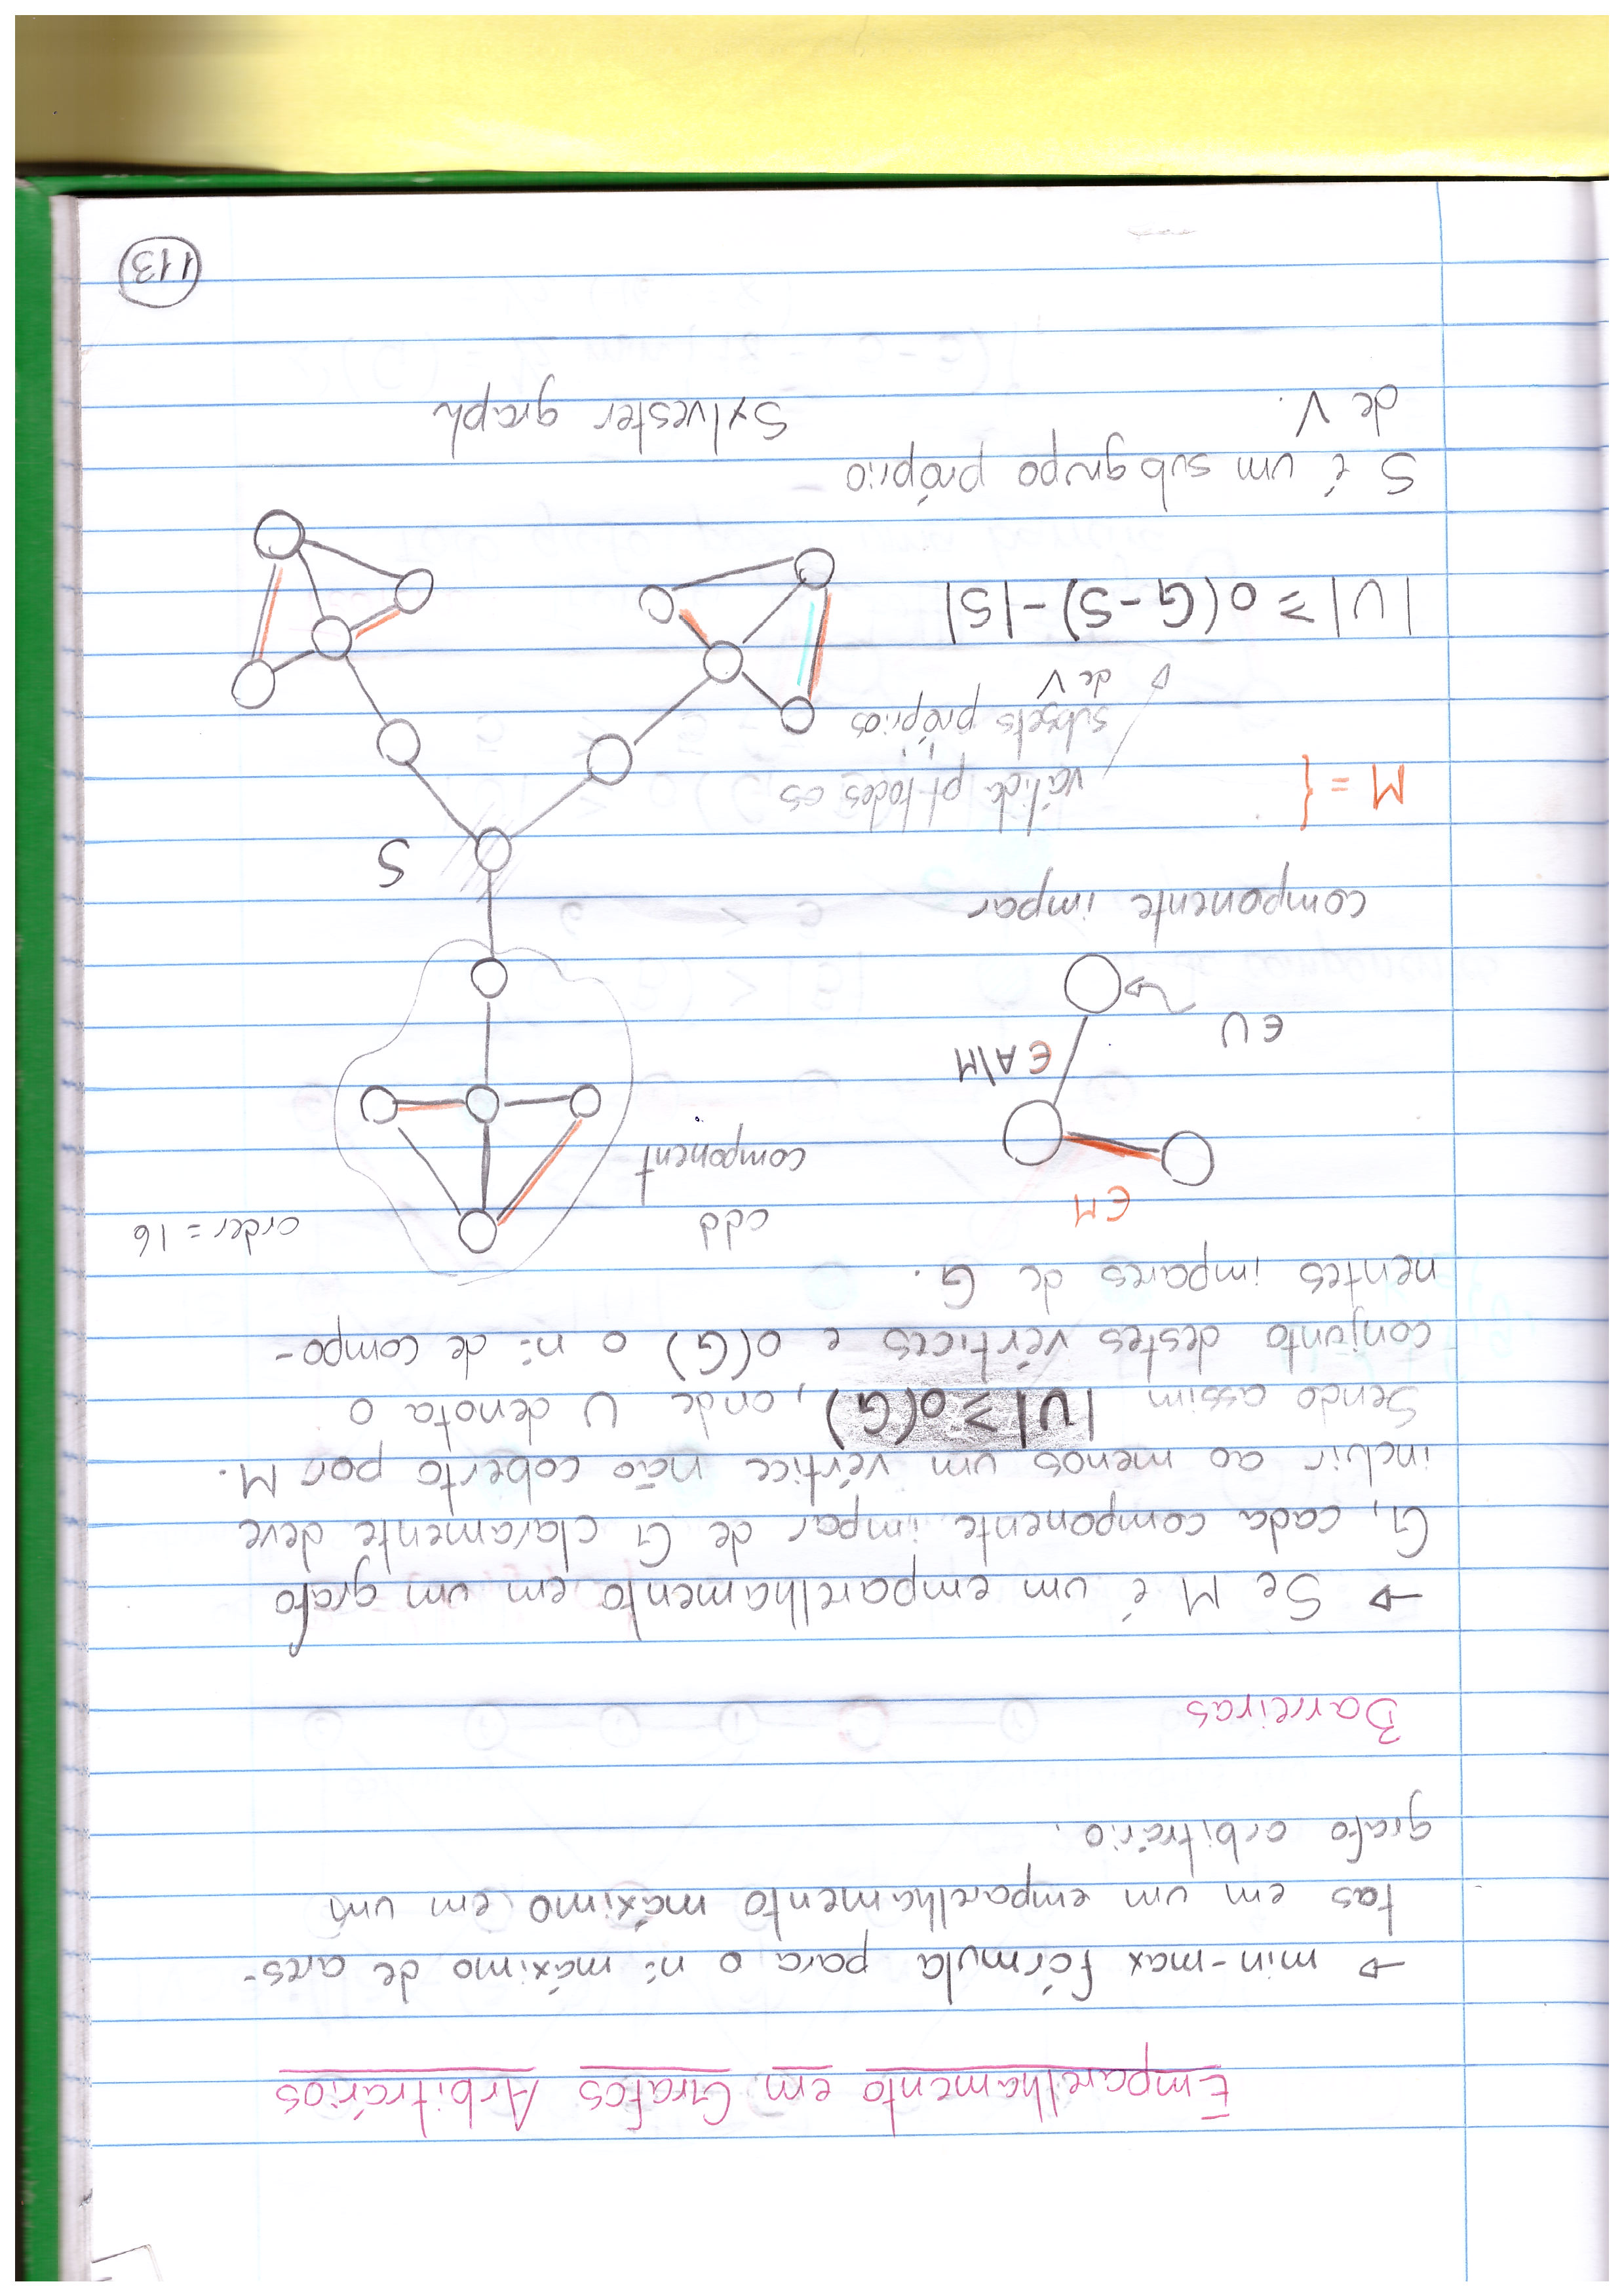 Emparelhamento em Grafos Arbitrários
→ min-max fórmula para o nº máximo de ares-
tas em um emparelhamento máximo em um
grafo arbitrário.
Barreiras
→ Se M é um emparelhamento em um grafo
G, cada componente impar de G claramente deve
incluir ao menos um vértice não coberto por M.
Sendo assim |U| ≥ o(G), onde U denota o
conjunto destes vértices e o(G) o nº de compo-
nentes impares de G.
∈M
odd
component
order = 16
∈ A\M
∈ U
componente impar
S
M = {
válida p/ todos os
subsets próprios
de V
|U| ≥ o(G-S) - |S|
S é um subgrupo próprio
de V.
Sylvester graph
113